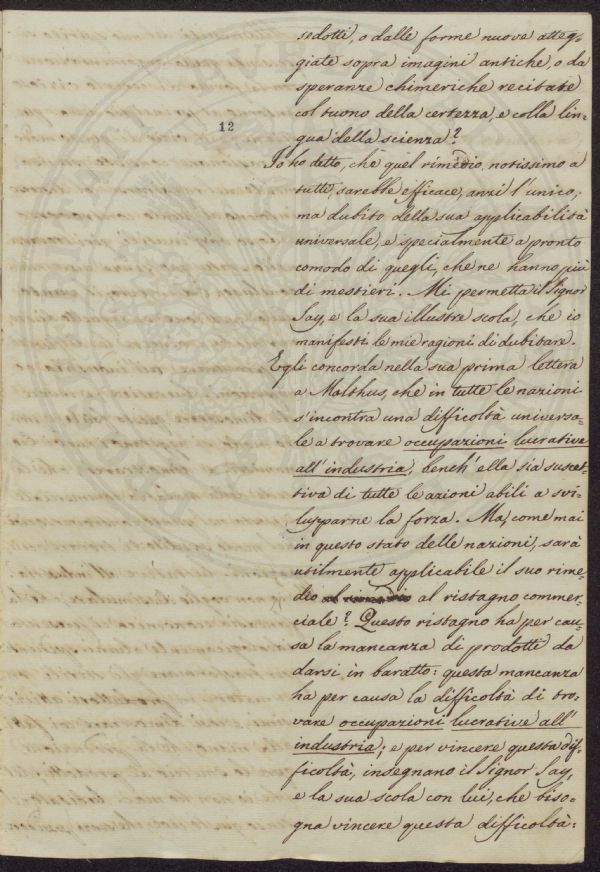 sedotti, o dalle forme nuove atteg-
giate sopra imagini antiche, o da
speranze chimeriche recitate
col tuono della certezza, e colla lin-
12
gua della scienza?
Io ho detto, che quel rimedio, notissimo a
tutti, sarebbe efficace, anzi l'unico;
ma dubito della sua applicabilità
universale, e specialmente a pronto
comodo di quegli, che ne hanno più
di mestieri. Mi permetta il Signor
Say, e la sua illustre scola, che io
manifesti le mie ragioni di dubitare.
Egli concorda nella sua prima lettera
a Malthus, che in tutte le nazioni
s'incontra una difficoltà universa-
le a trovare occupazioni lucrative
all'industria, bench'ella sia suscet-
tiva di tutte le azioni abili a svi-
lupparne la forza. Ma, come mai
in questo stato delle nazioni, sarà
utilmente applicabile il suo rime-
dio al ristagno commer-
ciale? Questo ristagno ha per cau-
sa la mancanza di prodotti da
darsi in baratto: questa mancanza
ha per causa la difficoltà di tro-
vare occupazioni lucrative all'
industria; e per vincere questa dif-
ficoltà, insegnano il Signor Say,
e la sua scola con lui, che biso-
gna vincere questa difficoltà: